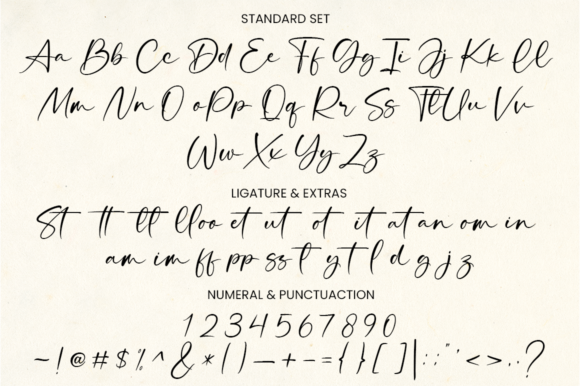 STANDARD SET
Aa Bb Cc Dd Ee Ff Gg Ii Jj Kk Ll
Mm Nn O oPp Qq Rr Ss TtUu Vv
Ww Xx Yy Zz
LIGATURE & EXTRAS
St tt ttt lloo et ut ot it at an om in
am im ff pp ss t y t l d g j z
NUMERAL & PUNCTUACTION
1 2 3 4 5 6 7 8 9 0
~ ! @ # $ % ^ & * ( ) — + - = { } [ ] | : ; " ' < > , . ?